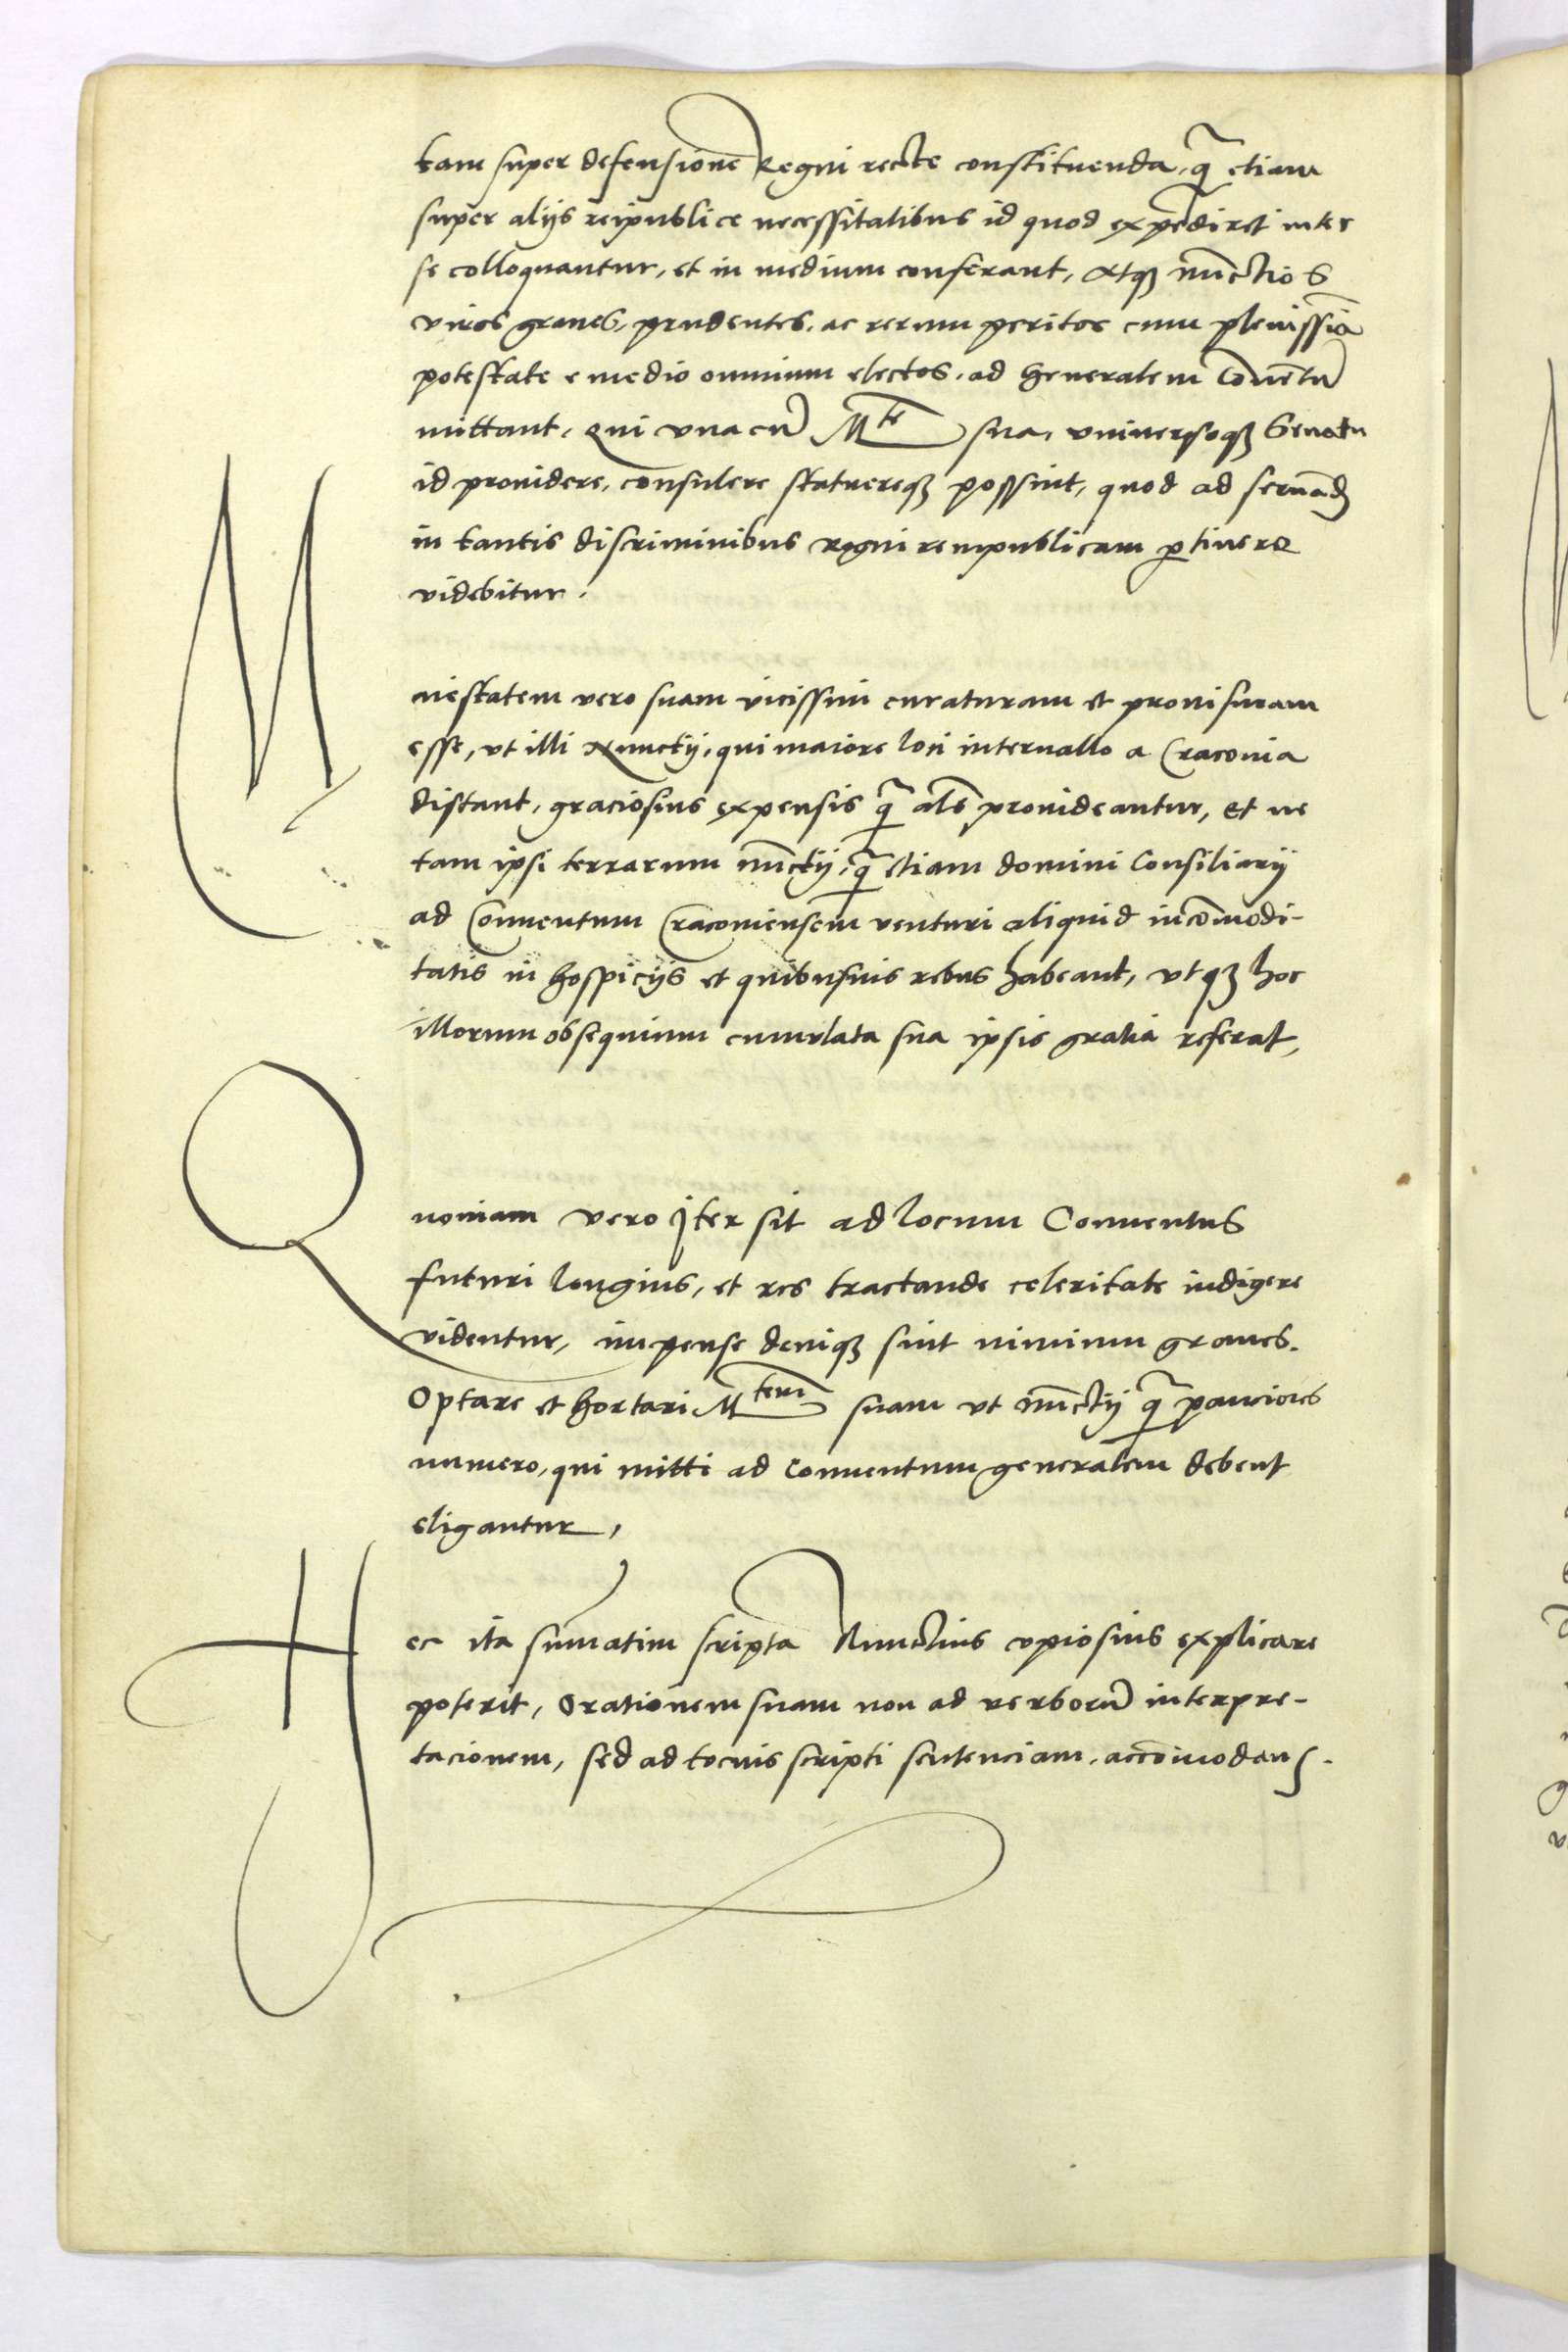 tam super defensione Regni recte constituenda, q̃ etiam
super alijs reipublice necessitatibus id quod expediret inter
se colloquantur, et in medium conferant, Atqꝫ nũctios
viros graues, prudentes, ac rerum peritos cum plenissĩa
potestate e medio omnium electos, ad Generalem Cõuẽtũ
mittant, Qui vna cũ Mte sua, vniuersoqꝫ Senatu
id prouidere, consulere statuereqꝫ possint, quod ad seruãdã
in tantis discriminibus regni rempublicam ꝑtinere
videbitur.
Maiestatem vero suam vicissim curaturam et prouisuram
esse, vt illi Nunctij, qui maiore loci interuallo a Cracouia
distant, graciosius expensis q̃ alẽ prouideantur, et ne
tam ipsi terrarum nũctij, q̃ etiam domini Consiliarij
ad Conuentum Cracouiensem venturi aliquid incõmodi-
tatis in hospicijs et quibusuis rebus habeant, vtqꝫ hoc
illorum obsequium cumulata sua ipsis gratia referat,
Quoniam vero Iter sit ad locum Conuentus
futuri longius, et res tractande celeritate indigere
videntur, impense deniqꝫ sint nimium graues.
Optare et hortari Mtem suam vt nũctij q̃ pauciores
numero, qui mitti ad Conuentum generalem debent
eligantur,
Hec ita sum̃atim scripta Nunctius copiosius explicare
poterit, Orationem suam non ad verborũ interpre-
tacionem, sed ad tocius scripti sentenciam, accõmodans.